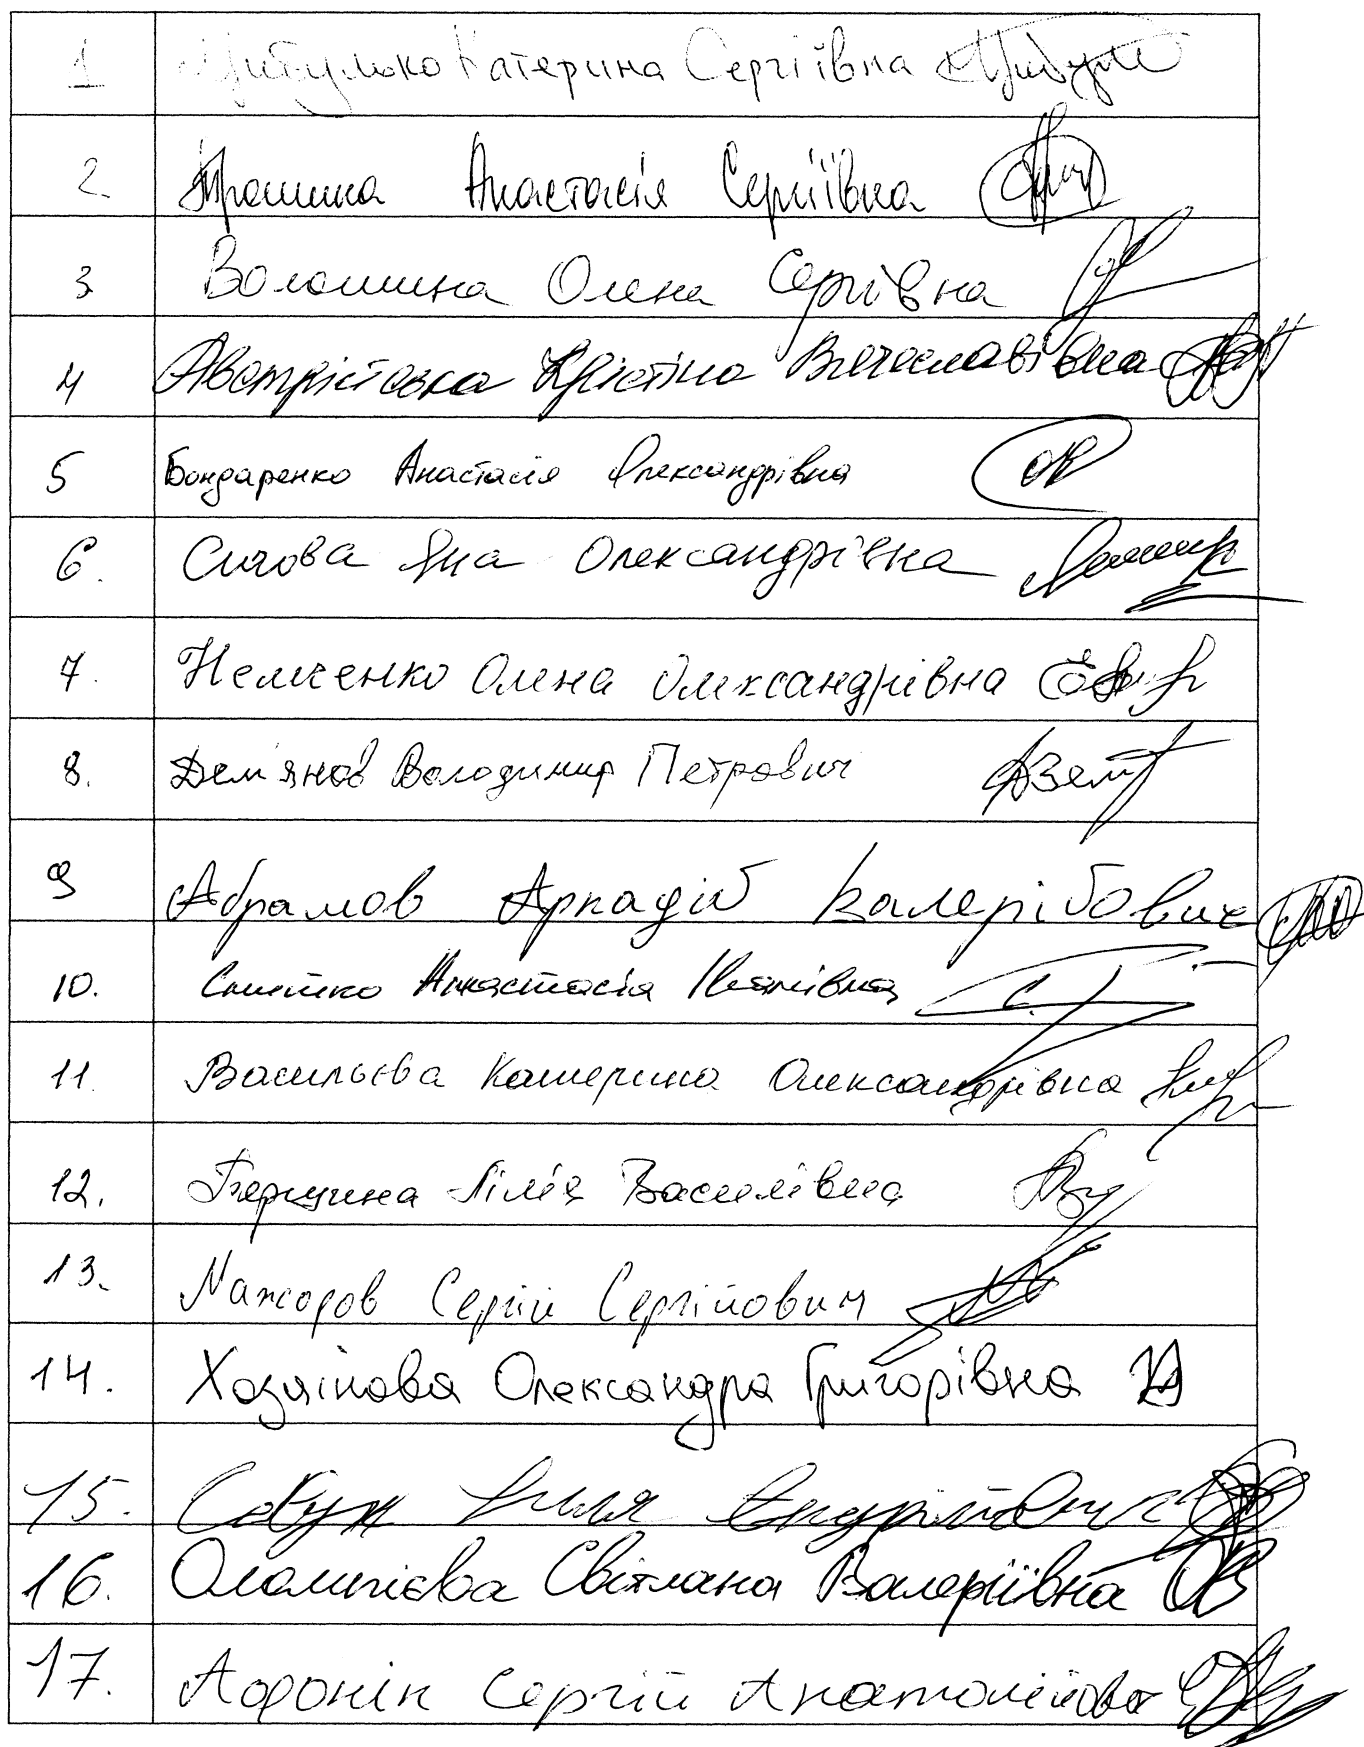 1 Цибулько Катерина Сергіївна
2 Анастасія Сергіївна
3 Волошина Олена Сергіївна
4 Австрійська Крістіна Вячеславівна
5 Бондаренко Анастасія Олександрівна
6. Сичова Яна Олександрівна
7. Немченко Олена Олександрівна
8. Дем'янов Володимир Петрович
9 Абрамов Аркадій Валерійович
10. Анастасія Іванівна
11. Васильєва Катерина Олександрівна
12. Лілія Василівна
13. Мажоров Сергій Сергійович
14. Хозяінова Олександра Григорівна
15. Ілля Андрійович
16. Світлана Валеріївна
17. Афонін Сергій Анатолійович